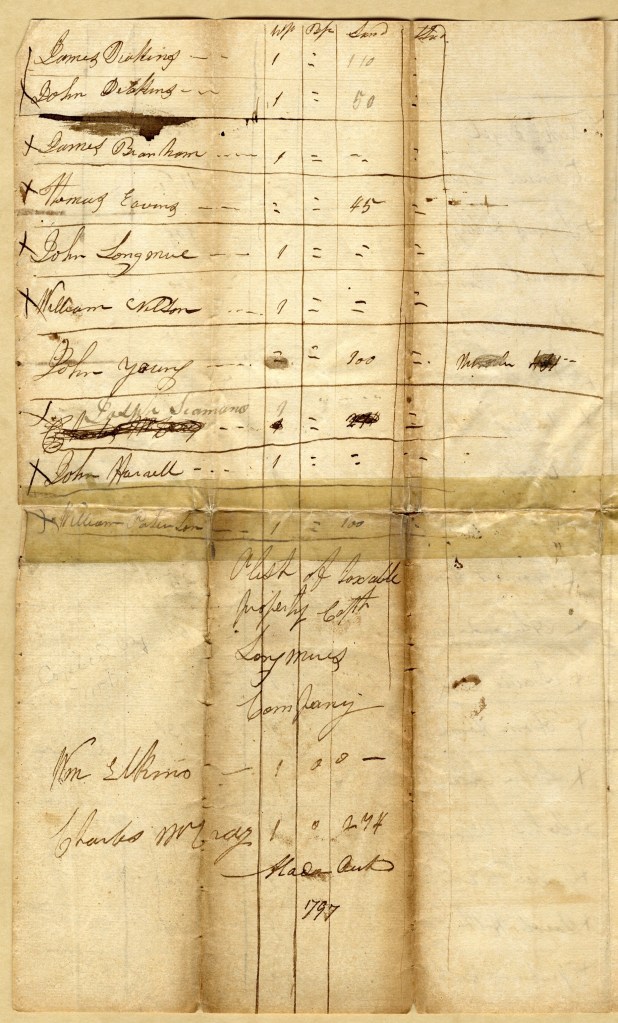 wp Bp Land Stud
James Diokins -- 1 = 110
John Diokins -- 1 = 50 -
James Branham --- 1 = -- =
Thomas --- = = 45 =
John Longmire --- 1 = = =
William Nilson --- 1 = = =
John Young --- = = 100 =
Joseph Seamans 1
-- 1 =
John Harrell --- 1 = = =
William -- 1 = 100 =
A list of taxable
Property Capth
Longmires
Company
Wm Elkins -- 1 0 0 -
Charles McCray 1 0 274
Made Out
1797